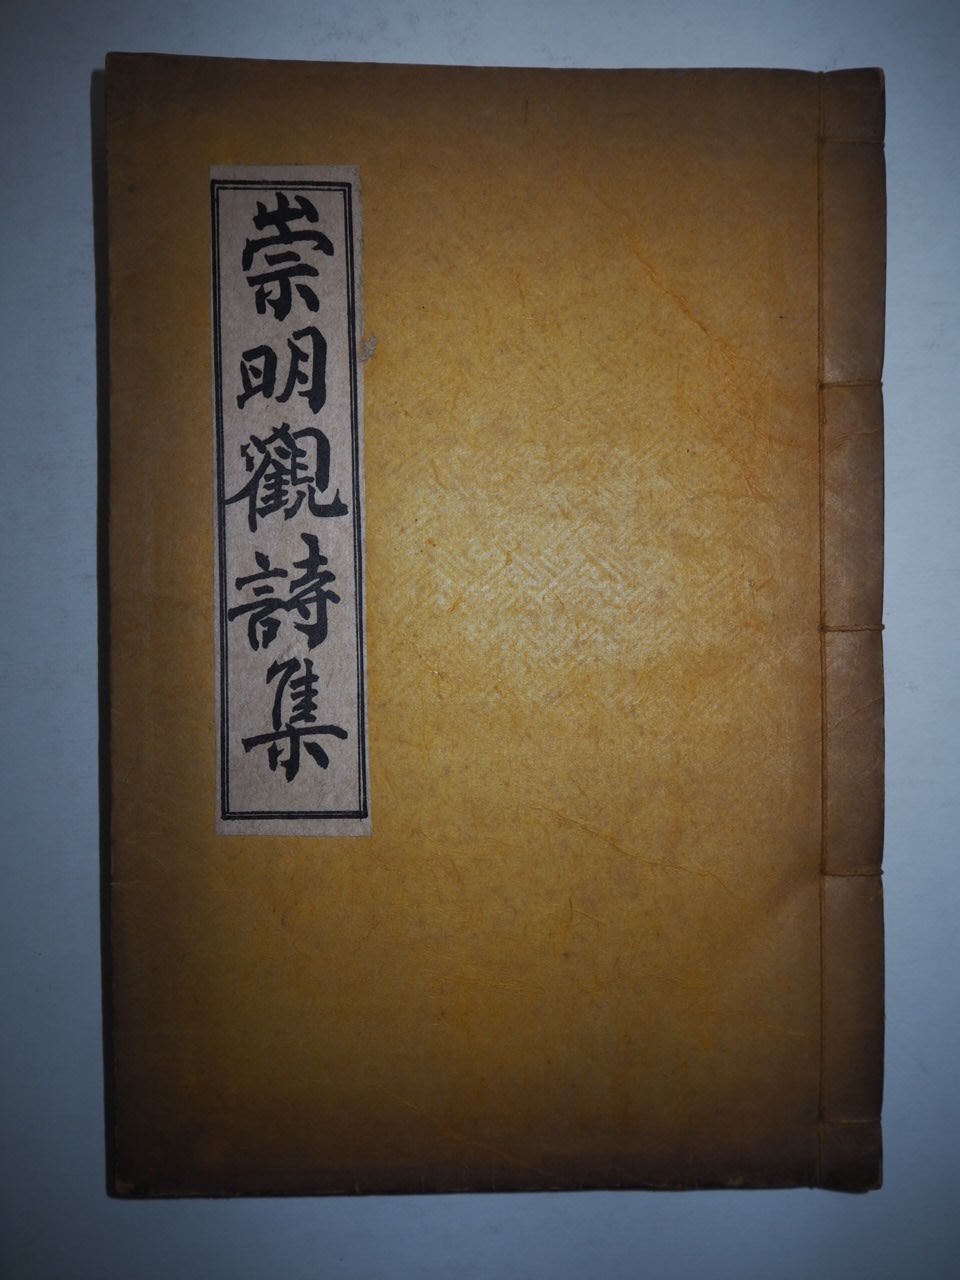 崇明觀詩集